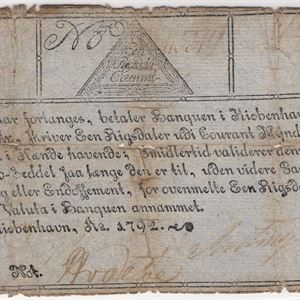 No
Een
Rigsdaler
Courant
ar forlanges, betaler Banquen i Kiøbenhav
hriver Een Rigsdaler udi Courant Mynt
i Hænde havende; imidlertid validerer den
o-Seddel saa længe den er til, uden videre
g eller Endossement, for ovenmelte Een Rigsd
Valuta i Banquen annammet.
iøbenhavn, Ao. 1792.
Not.